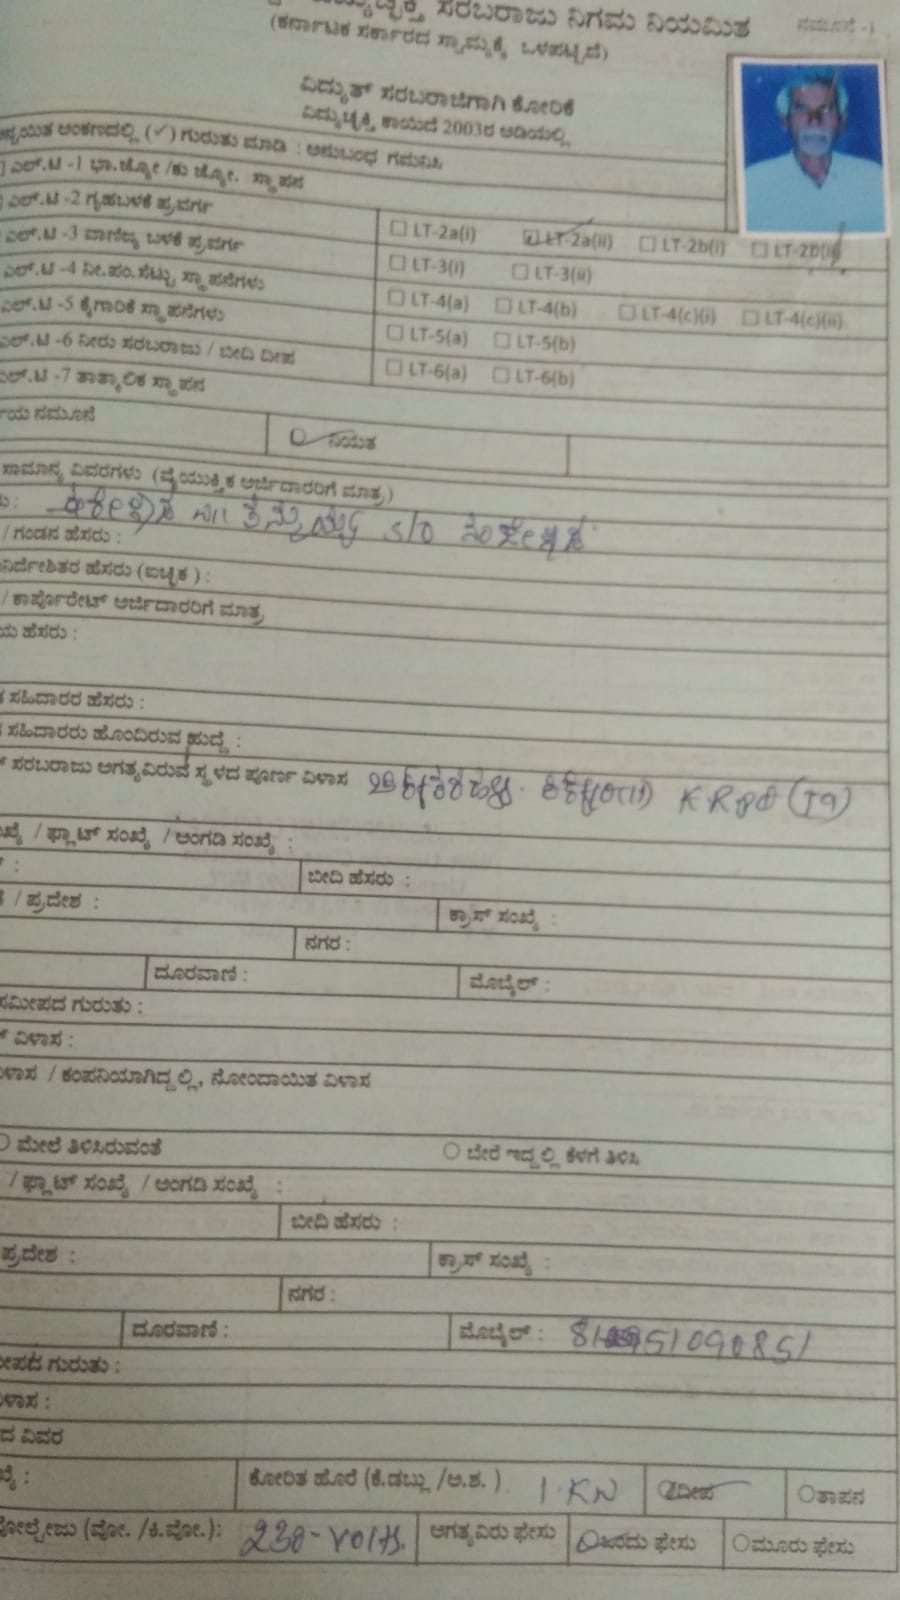 ಸರಬರಾಜು ನಿಗಮ ನಿಯಮಿತ
ನಮೂನೆ -1
(ಕರ್ನಾಟಕ ಸರ್ಕಾರದ ಸ್ವಾಮ್ಯಕ್ಕೆ ಒಳಪಟ್ಟಿದೆ)
ವಿದ್ಯುತ್ ಸರಬರಾಜಿಗಾಗಿ ಕೋರಿಕೆ
ವಿದ್ಯುಚ್ಛಕ್ತಿ ಕಾಯಿದೆ 2003ರ ಅಡಿಯಲ್ಲಿ
ಅನ್ವಯಿತ ಅಂಕಣದಲ್ಲಿ (✓) ಗುರುತು ಮಾಡಿ : ಅನುಬಂಧ ಗಮನಿಸಿ
ಎಲ್.ಟಿ -1 ಭಾ.ಜ್ಯೋ /ಕು ಜ್ಯೋ. ಸ್ಥಾಪನ
ಎಲ್.ಟಿ -2 ಗೃಹಬಳಕೆ ಪ್ರವರ್ಗ LT-2a(i) LT-2a(ii) LT-2b(i) LT-2b(ii)
ಎಲ್.ಟಿ -3 ವಾಣಿಜ್ಯ ಬಳಕೆ ಪ್ರವರ್ಗ LT-3(i) LT-3(ii)
ಎಲ್.ಟಿ -4 ನೀ.ಪಂ.ಸೆಟ್ಟು ಸ್ಥಾಪನೆಗಳು LT-4(a) LT-4(b) LT-4(c)(i) LT-4(c)(ii)
ಎಲ್.ಟಿ -5 ಕೈಗಾರಿಕೆ ಸ್ಥಾಪನೆಗಳು LT-5(a) LT-5(b)
ಎಲ್.ಟಿ -6 ನೀರು ಸರಬರಾಜು / ಬೀದಿ ದೀಪ LT-6(a) LT-6(b)
ಎಲ್.ಟಿ -7 ತಾತ್ಕಾಲಿಕ ಸ್ಥಾಪನ
ನಮೂನೆ ನಿಯತ
ಸಾಮಾನ್ಯ ವಿವರಗಳು (ವೈಯುಕ್ತಿಕ ಅರ್ಜಿದಾರರಿಗೆ ಮಾತ್ರ)
S/O
/ ಗಂಡನ ಹೆಸರು :
ನಿರ್ದೇಶಿತರ ಹೆಸರು (ಐಚ್ಛಿಕ ) :
/ ಕಾರ್ಪೊರೇಟ್ ಅರ್ಜಿದಾರರಿಗೆ ಮಾತ್ರ
ಹೆಸರು :
ಸಹಿದಾರರ ಹೆಸರು :
ಸಹಿದಾರರು ಹೊಂದಿರುವ ಹುದ್ದೆ :
ಸರಬರಾಜು ಅಗತ್ಯವಿರುವ ಸ್ಥಳದ ಪೂರ್ಣ ವಿಳಾಸ
/ ಫ್ಲಾಟ್ ಸಂಖ್ಯೆ / ಅಂಗಡಿ ಸಂಖ್ಯೆ :
ಬೀದಿ ಹೆಸರು :
/ ಪ್ರದೇಶ : ಕ್ರಾಸ್ ಸಂಖ್ಯೆ :
ನಗರ :
ದೂರವಾಣಿ : ಮೊಬೈಲ್ :
ಸಮೀಪದ ಗುರುತು :
ವಿಳಾಸ :
ವಿಳಾಸ / ಕಂಪನಿಯಾಗಿದ್ದಲ್ಲಿ, ನೋಂದಾಯಿತ ವಿಳಾಸ
ಮೇಲೆ ತಿಳಿಸಿರುವಂತೆ ಬೇರೆ ಇದ್ದಲ್ಲಿ ಕೆಳಗೆ ತಿಳಿಸಿ
/ ಫ್ಲಾಟ್ ಸಂಖ್ಯೆ / ಅಂಗಡಿ ಸಂಖ್ಯೆ :
ಬೀದಿ ಹೆಸರು :
ಪ್ರದೇಶ : ಕ್ರಾಸ್ ಸಂಖ್ಯೆ :
ನಗರ :
ದೂರವಾಣಿ : ಮೊಬೈಲ್ :
ಗುರುತು :
ವಿಳಾಸ :
ವಿವರ
ಕೋರಿತ ಹೊರೆ (ಕೆ.ಡಬ್ಲ್ಯು /ಅ.ಶ. ) 1.KW ದೀಪ ತಾಪನ
ವೋಲ್ಟೇಜು (ವೋ. /ಕಿ.ವೋ.): 230-Volts. ಅಗತ್ಯವಿರು ಫೇಸು ಒಂದು ಫೇಸು ಮೂರು ಫೇಸು